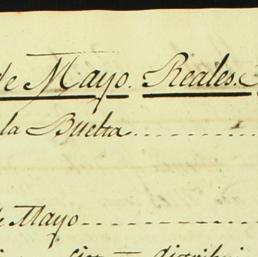 de Mayo. Reales.
la Buelta
de Mayo
distribui